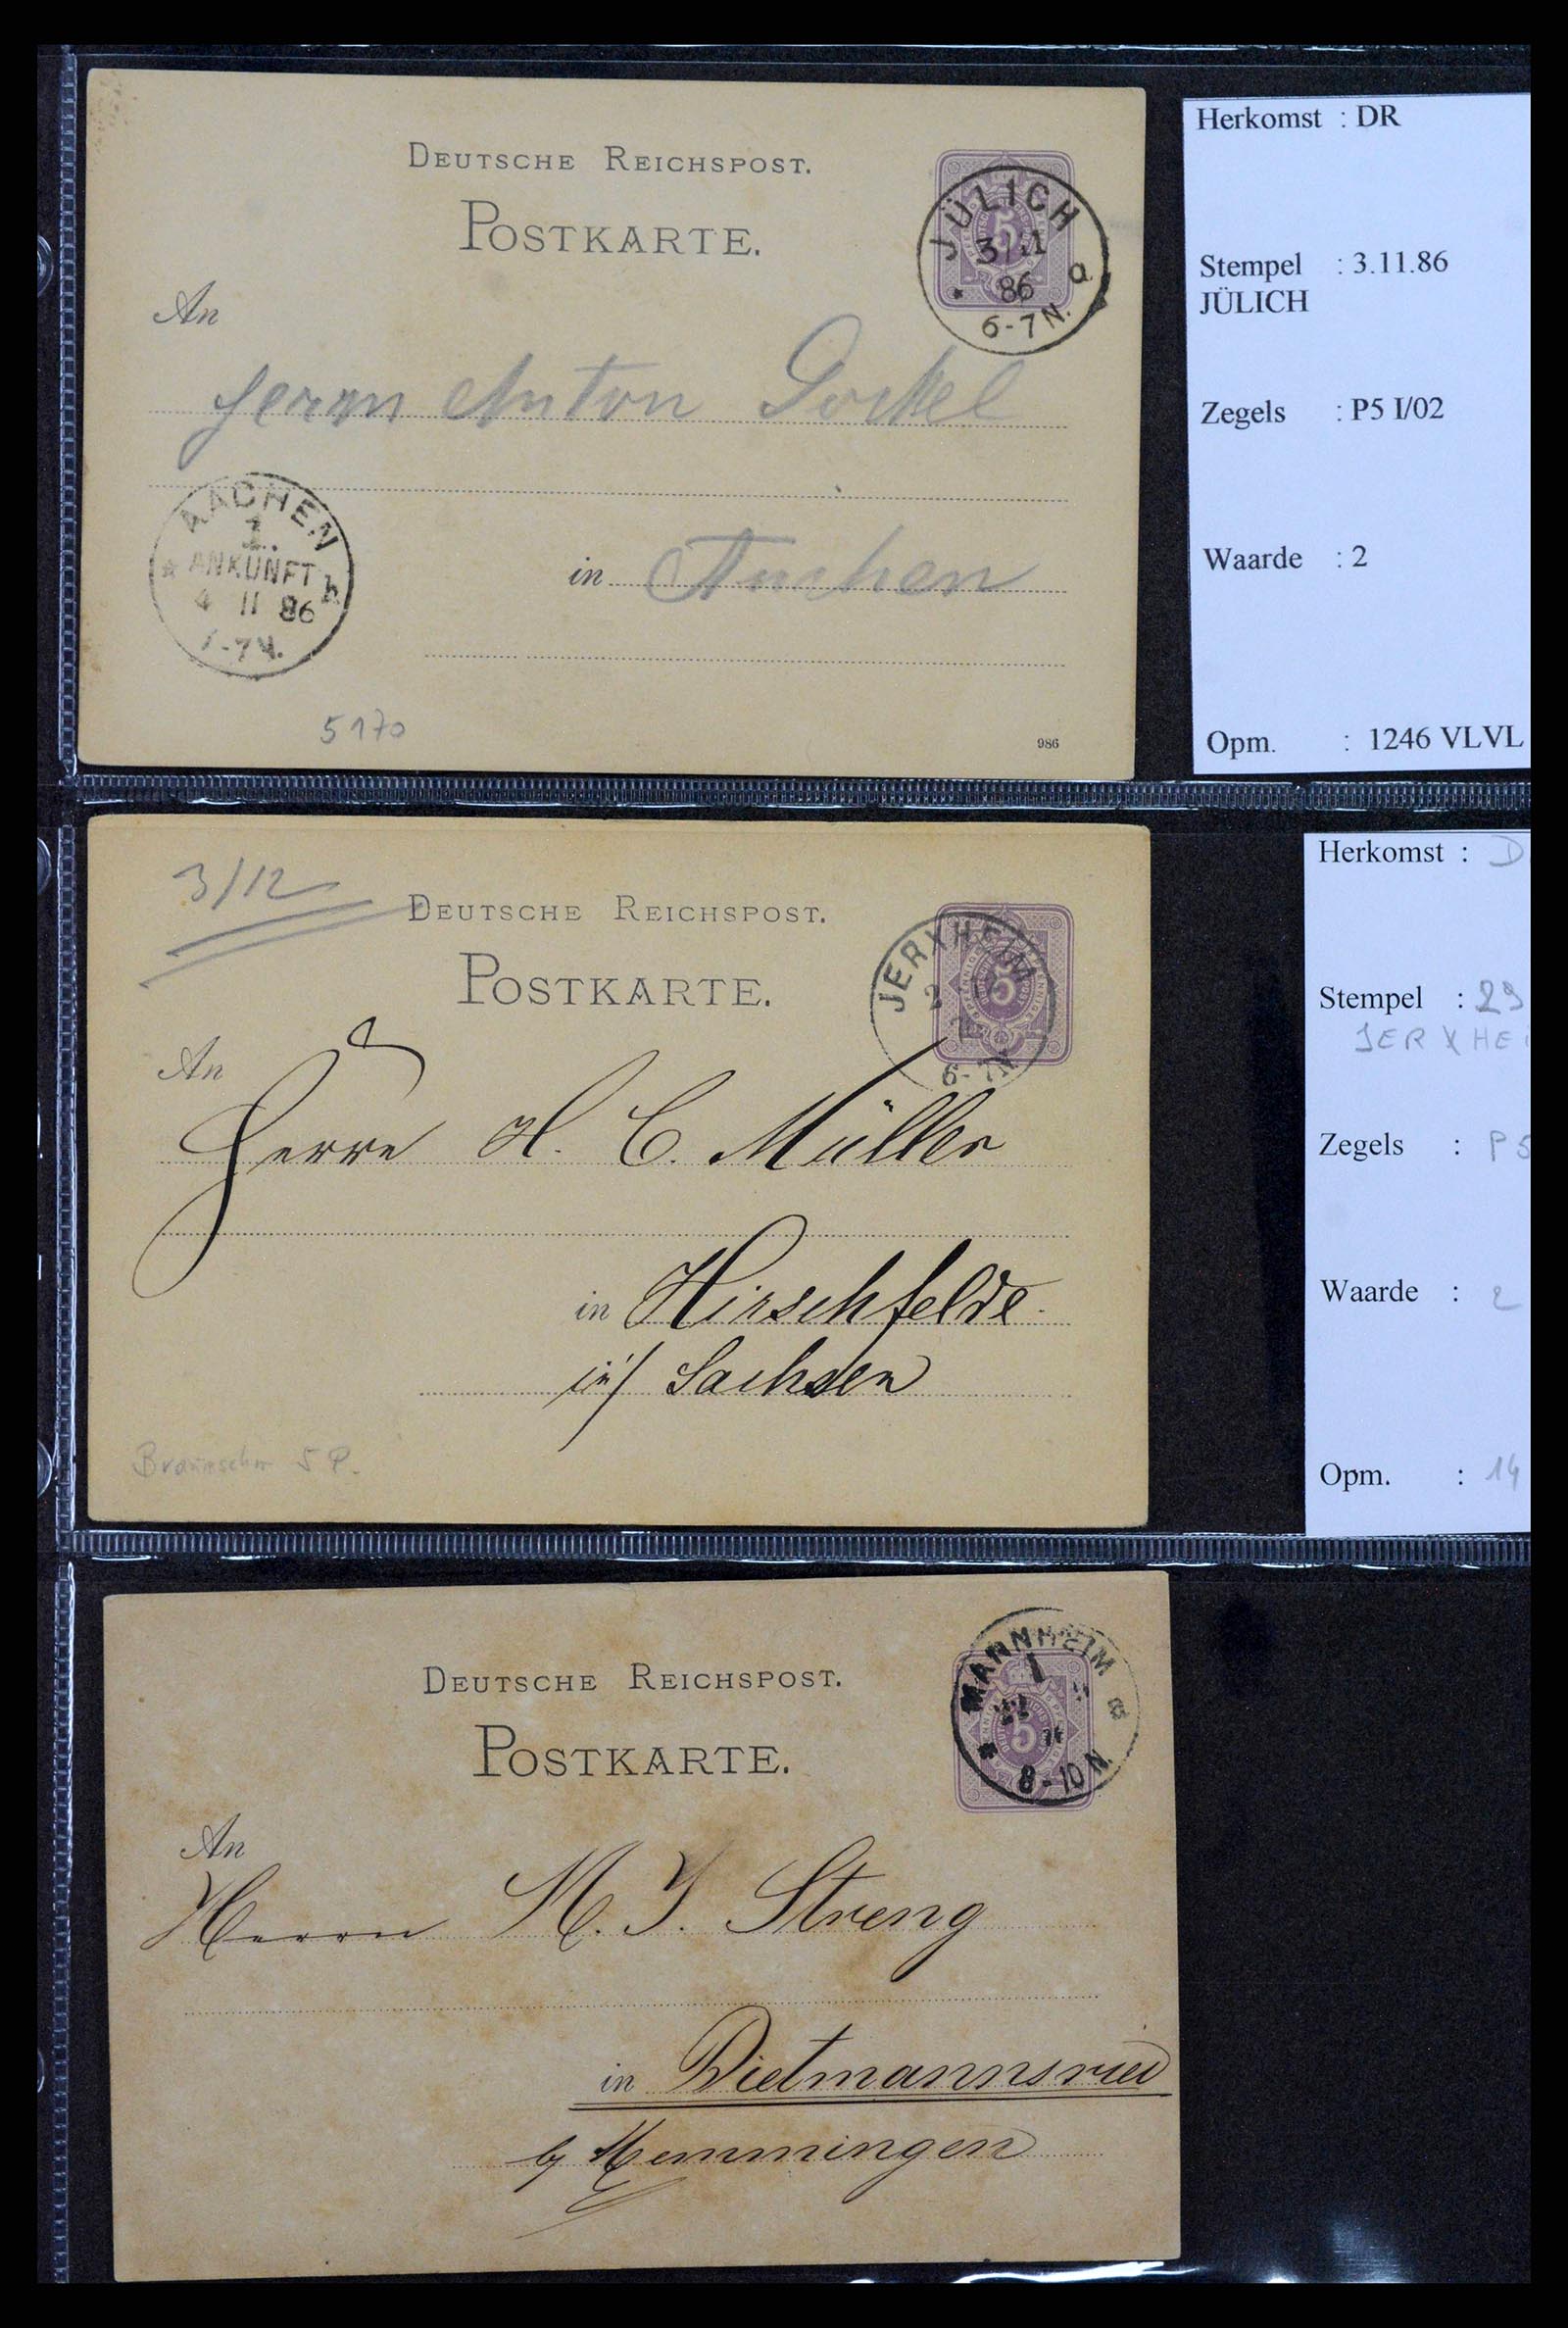 DEUTSCHE REICHSPOST.
POSTKARTE.
JÜLICH
3/11
86
a
6-7N.
An
Herrn Anton Gockel
AACHEN
1.
ANKUNFT
4 11 86
h
-7V.
in Aachen
5170
986
Herkomst : DR
Stempel : 3.11.86
JÜLICH
Zegels : P5 I/02
Waarde : 2
Opm. : 1246 VLVL
3/12
DEUTSCHE REICHSPOST.
POSTKARTE.
JERXHEIM
2
6-7N
An
Herrn H. C. Müller
in Hirschfelde
i/ Sachsen
Braunschw 5 P.
Herkomst : D
Stempel : 29
JERXHEI
Zegels : P5
Waarde : 2
Opm. : 14
DEUTSCHE REICHSPOST.
POSTKARTE.
MANNHEIM
1
22
8-10N.
An
Herrn M. J. Streng
in Dietmannsried
by Memmingen